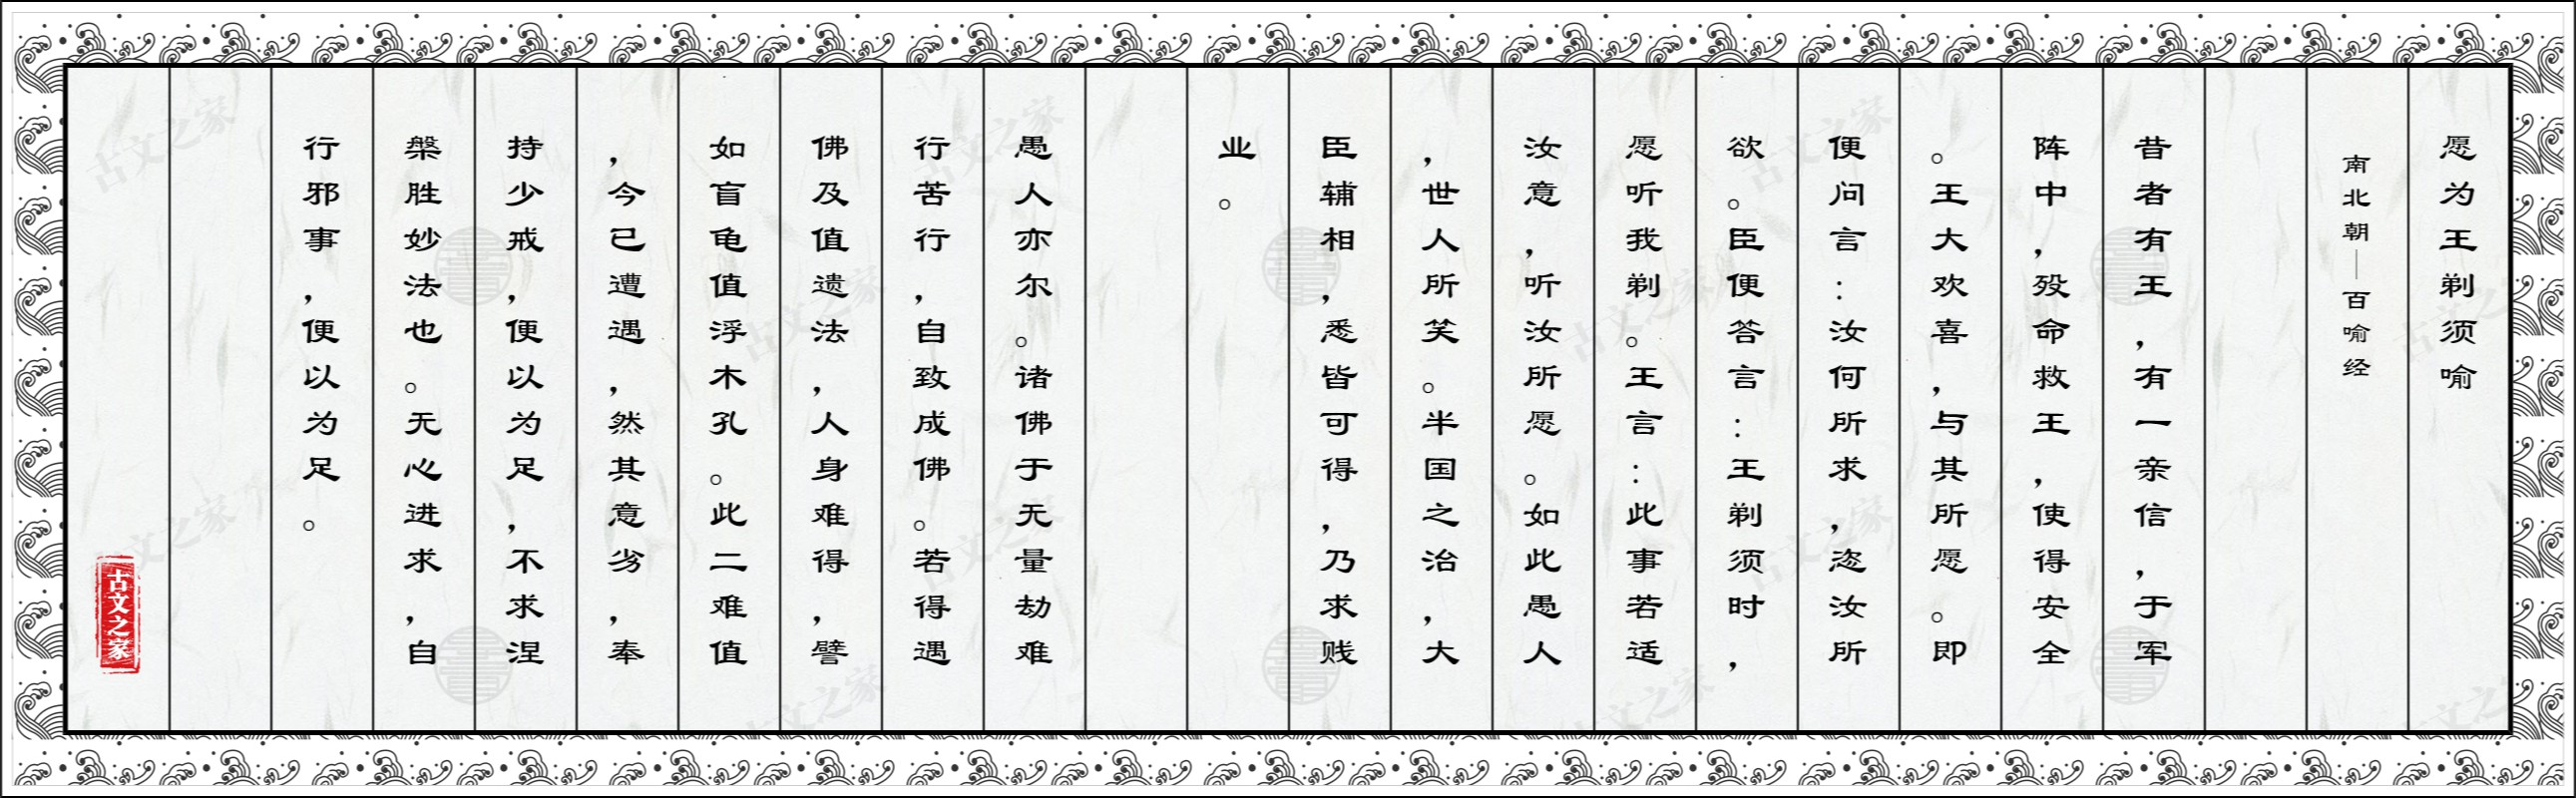 愿为王剃须喻
南北朝—百喻经
昔者有王，有一亲信，于军
阵中，殁命救王，使得安全
。王大欢喜，与其所愿。即
便问言：汝何所求，恣汝所
欲。臣便答言：王剃须时，
愿听我剃。王言：此事若适
汝意，听汝所愿。如此愚人
，世人所笑。半国之治，大
臣辅相，悉皆可得，乃求贱
业。
愚人亦尔。诸佛于无量劫难
行苦行，自致成佛。若得遇
佛及值遗法，人身难得，譬
如盲龟值浮木孔。此二难值
，今已遭遇，然其意劣，奉
持少戒，便以为足，不求涅
槃胜妙法也。无心进求，自
行邪事，便以为足。
古文之家